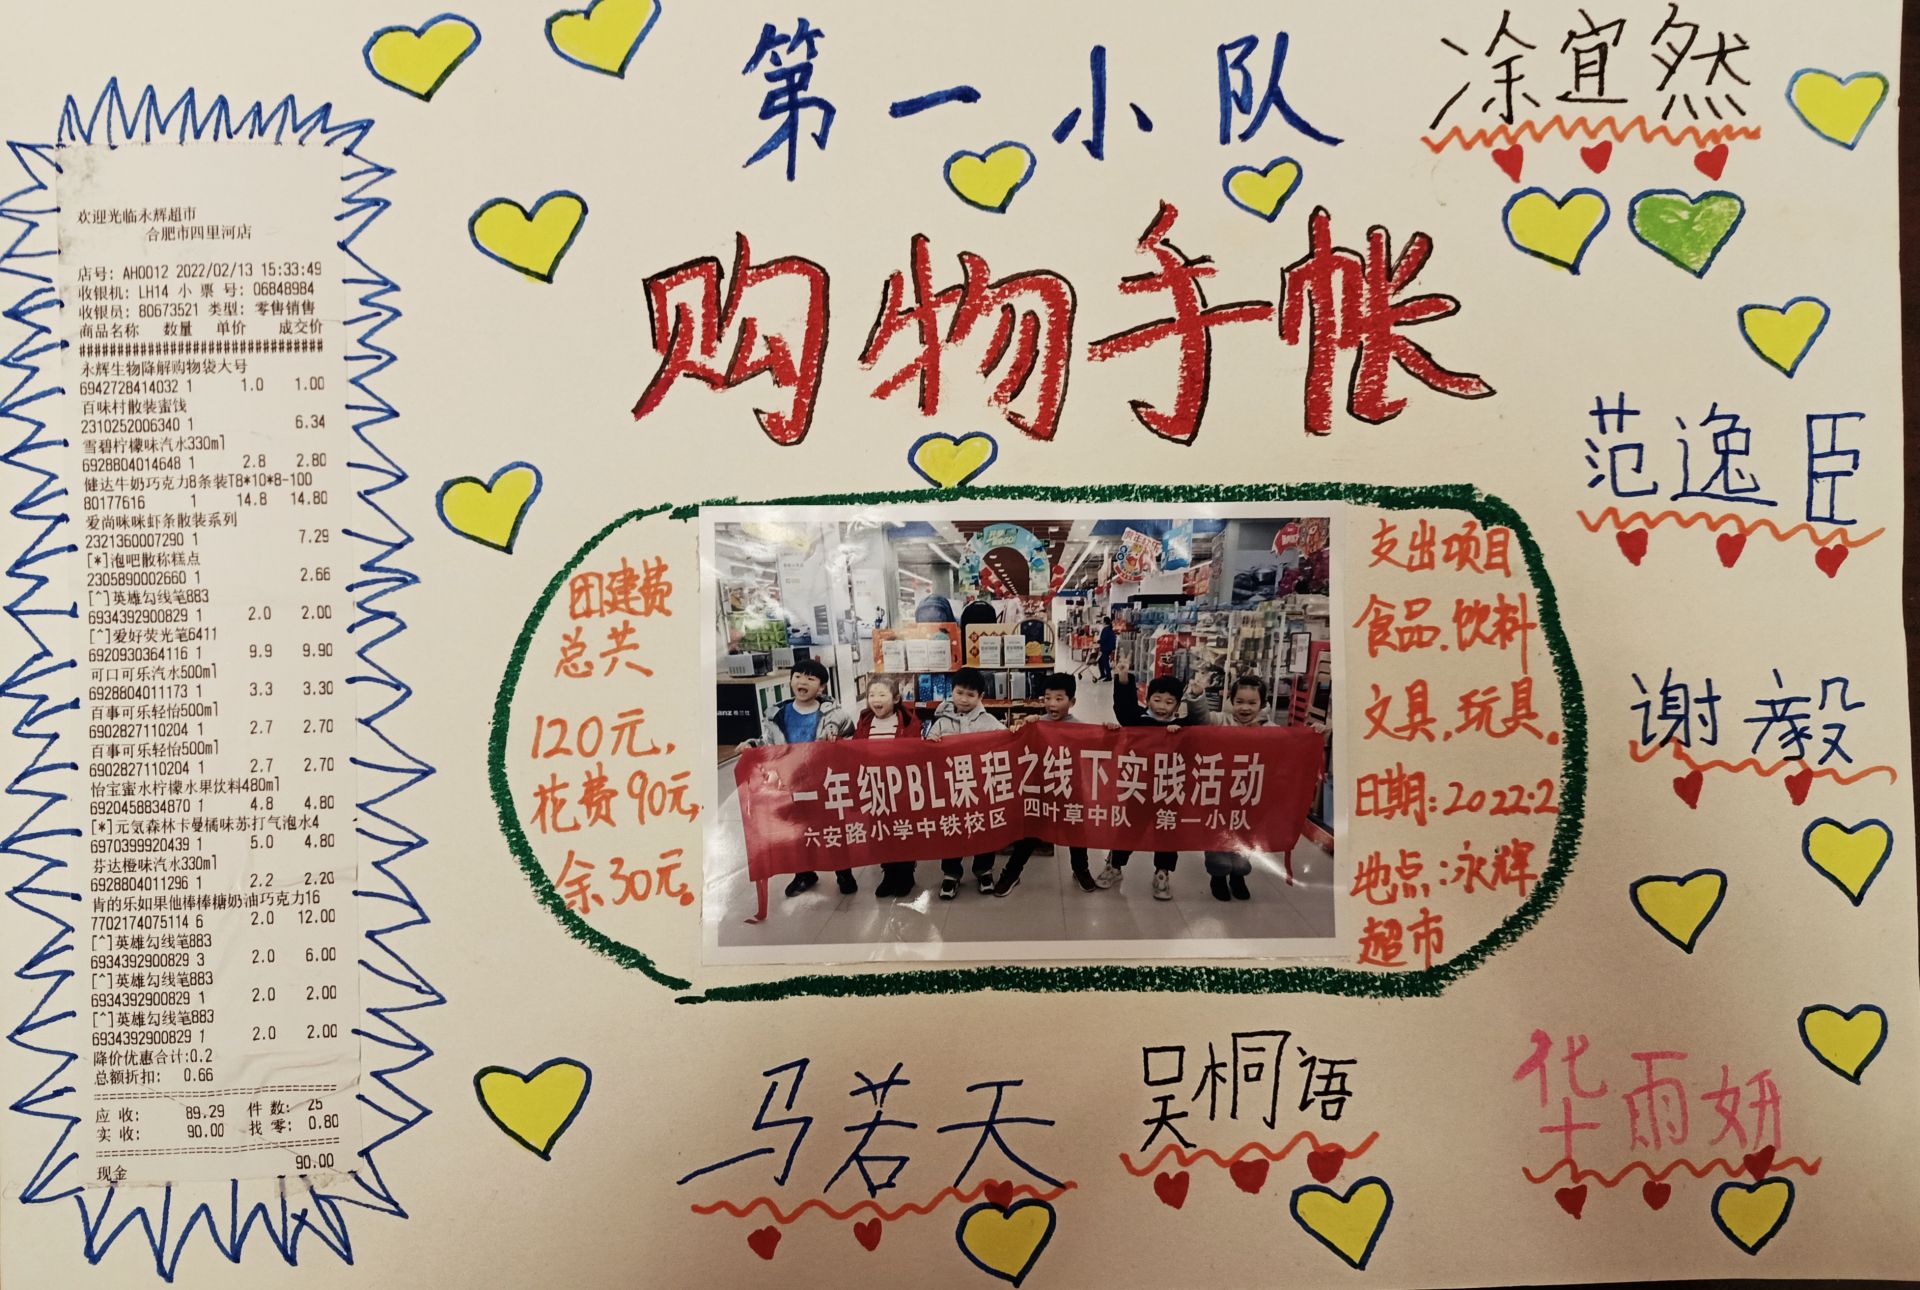 第一小队
购物手帐
涂宜然
范逸臣
谢毅
马若天
吴桐语
华雨妍
欢迎光临永辉超市
合肥市四里河店
店号: AH0012 2022/02/13 15:33:49
收银机: LH14 小 票 号: 06848984
收银员: 80673521 类型: 零售销售
商品名称 数量 单价 成交价
################################
永辉生物降解购物袋大号
6942728414032 1 1.0 1.00
百味村散装蜜饯
2310252006340 1 6.34
雪碧柠檬味汽水330ml
6928804014648 1 2.8 2.80
健达牛奶巧克力8条装T8*10*8-100
80177616 1 14.8 14.80
爱尚咪咪虾条散装系列
2321360007290 1 7.29
[*]泡吧散称糕点
2305890002660 1 2.66
[^]英雄勾线笔883
6934392900829 1 2.0 2.00
[^]爱好荧光笔6411
6920930364116 1 9.9 9.90
可口可乐汽水500ml
6928804011173 1 3.3 3.30
百事可乐轻怡500ml
6902827110204 1 2.7 2.70
百事可乐轻怡500ml
6902827110204 1 2.7 2.70
怡宝蜜水柠檬水果饮料480ml
6920458834870 1 4.8 4.80
[*]元気森林卡曼橘味苏打气泡水4
6970399920439 1 5.0 4.80
芬达橙味汽水330ml
6928804011296 1 2.2 2.20
肯的乐如果他棒棒糖奶油巧克力16
7702174075114 6 2.0 12.00
[^]英雄勾线笔883
6934392900829 3 2.0 6.00
[^]英雄勾线笔883
6934392900829 1 2.0 2.00
[^]英雄勾线笔883
6934392900829 1 2.0 2.00
降价优惠合计:0.2
总额折扣: 0.66
应 收: 89.29 件 数: 25
实 收: 90.00 找 零: 0.80
现金 90.00
团建费
总共
120元,
花费90元,
余30元。
一年级PBL课程之线下实践活动
六安路小学中铁校区 四叶草中队 第一小队
支出项目
食品.饮料
文具.玩具.
日期:2022.2
地点:永辉
超市